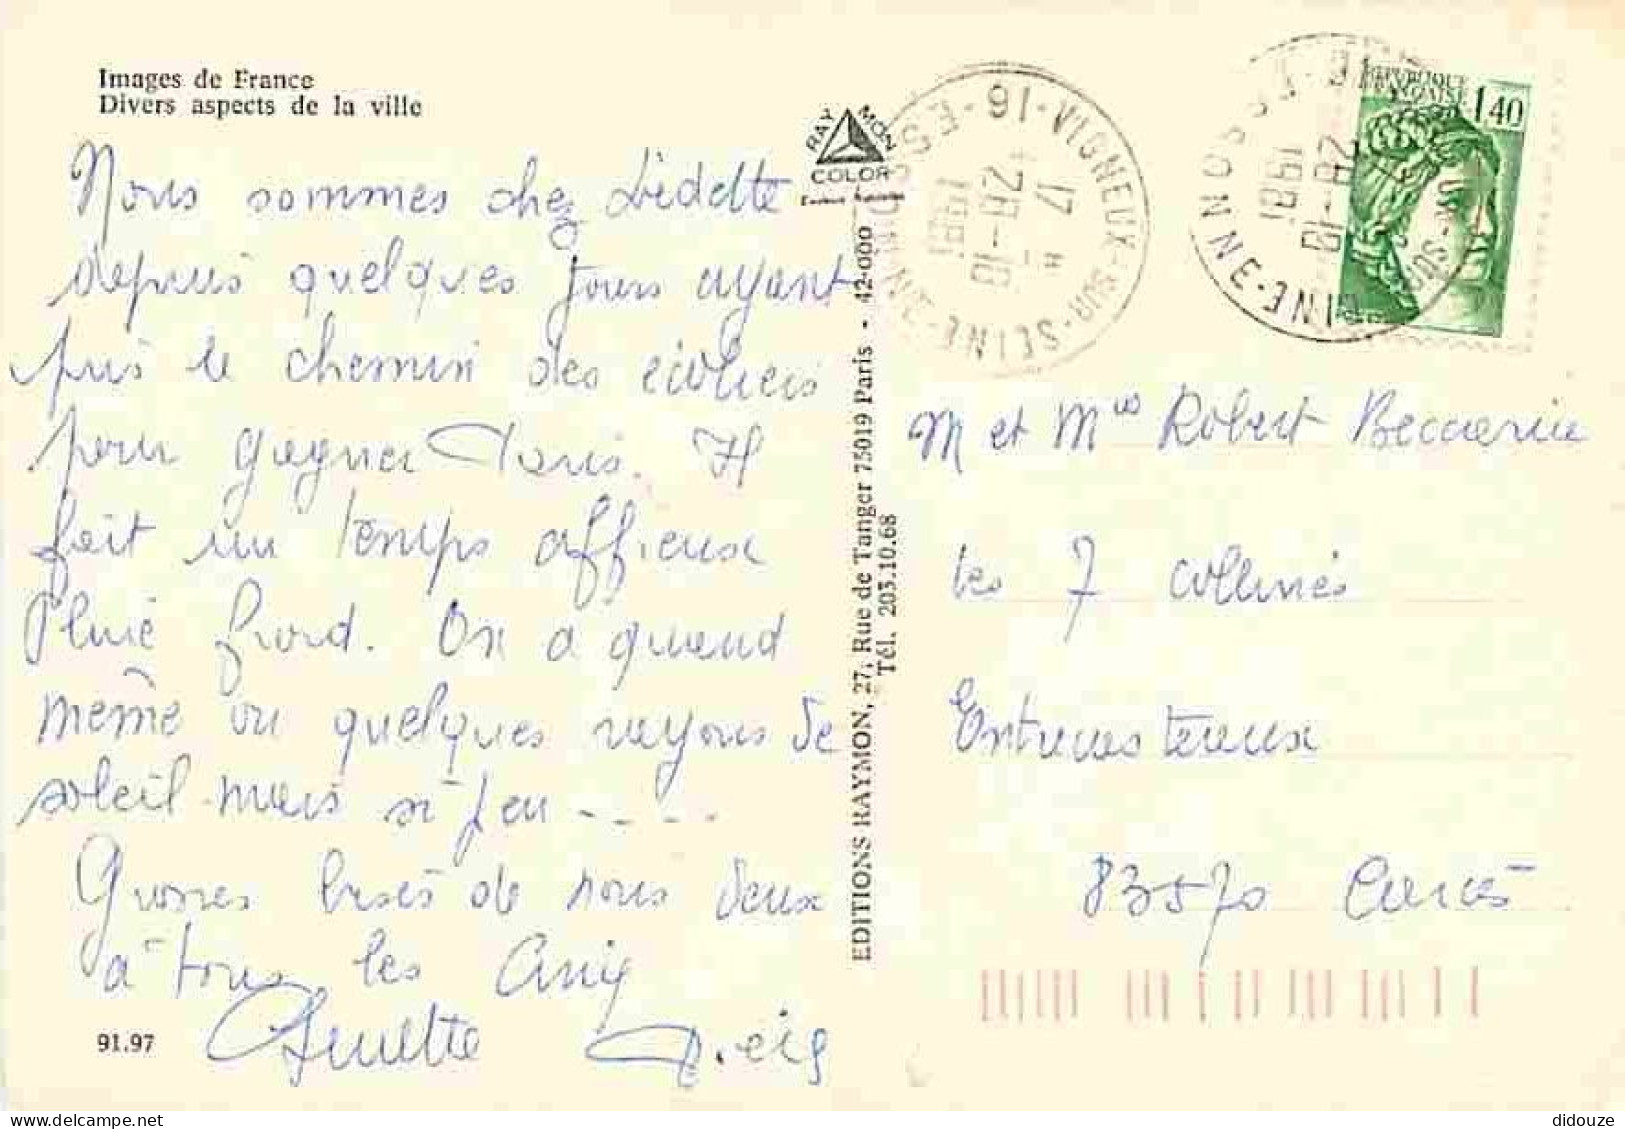 Images de France
Divers aspects de la ville
Nous sommes chez
depuis quelques jours ayant
pris le chemin des écoliers
pour gagner Paris. Il
fait un temps affreux
Pluie froid. On a quand
même vu quelques rayons de
soleil mais si peu - - - -
Grosses bises de nous deux
à tous les Amis
91.97
RAYMON
COLOR
EDITIONS RAYMON, 27, Rue de Tanger 75019 Paris - 42-000
Tél. 203.10.68
91-VIGNEUX-SUR-SEINE-ESSONNE
17 H
28-10
1981
REPUBLIQUE
FRANÇAISE
1,40
28-10
1981
M et Mme Robert
les 7 collines
Entrecasteaux
83570 Carcès
didouze